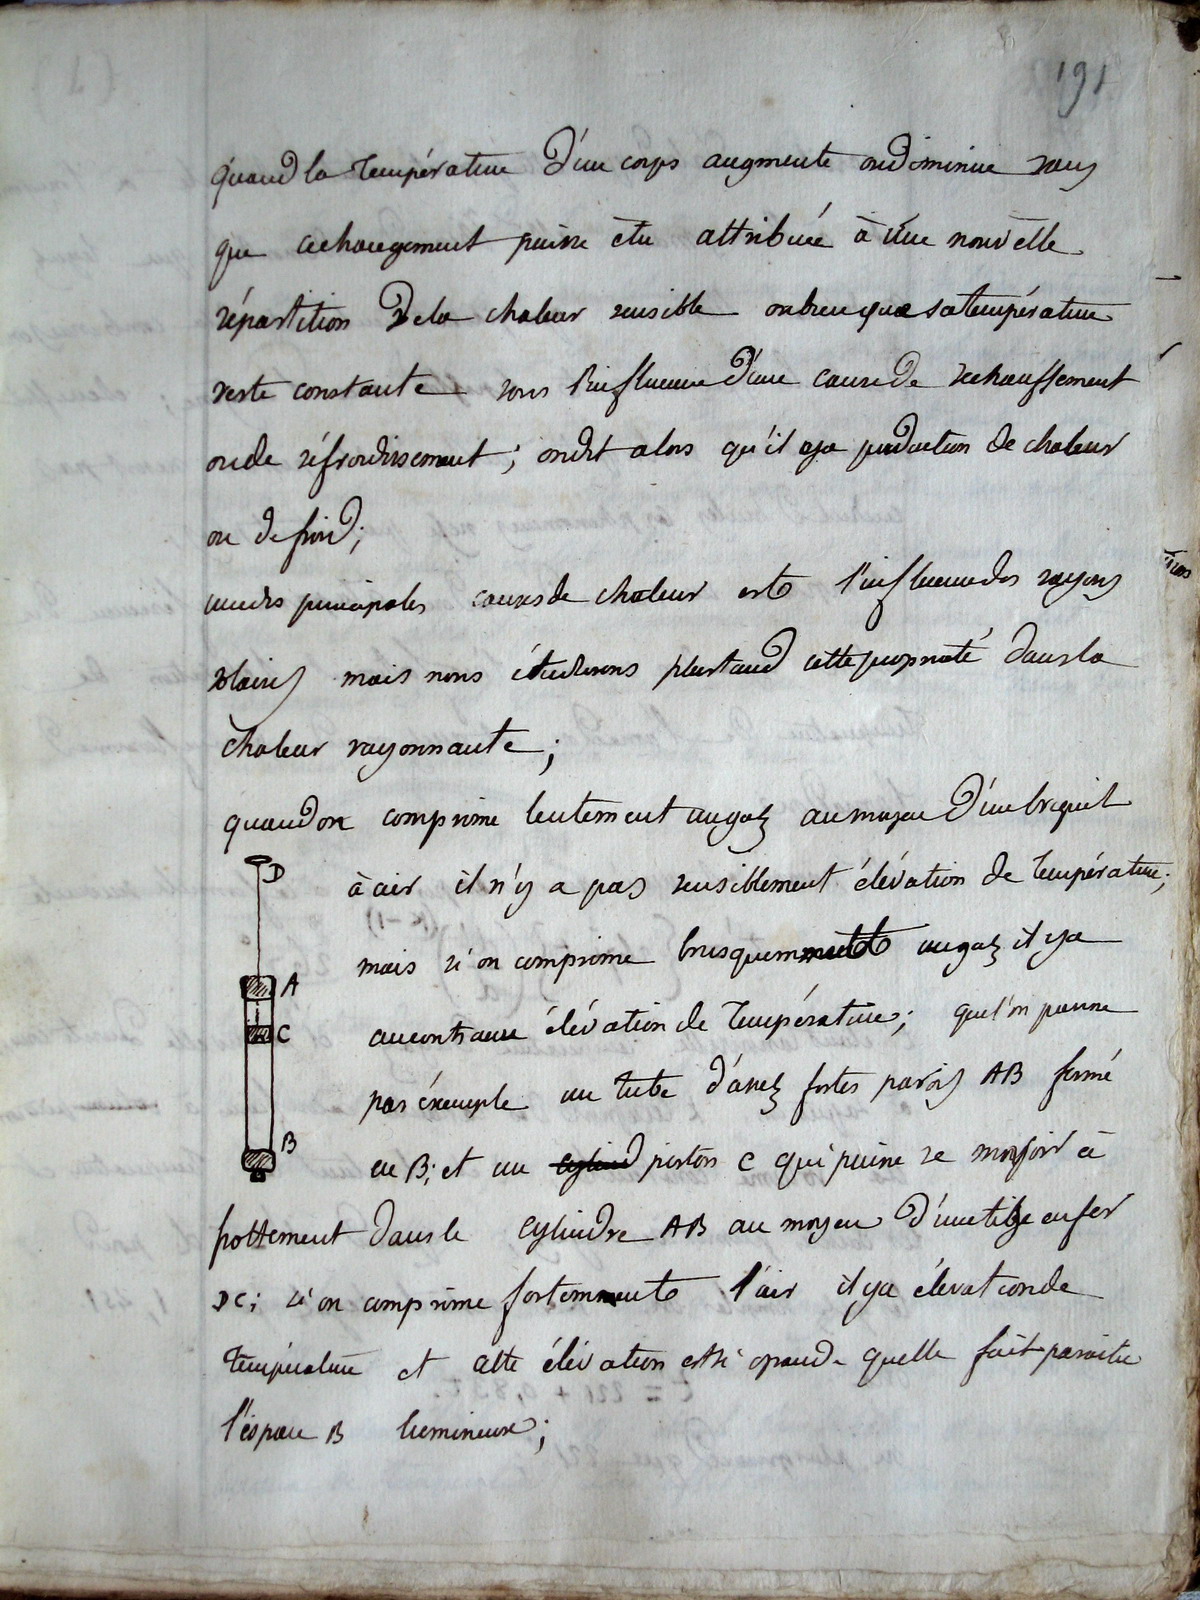 191
quand la température d'un corps augmente ou diminue sans
que ce changement puisse être attribué à une nouvelle
répartition de la chaleur sensible ou bien que sa température
reste constante sous l'influence d'une cause de rechauffement
ou de réfroidissement ; on dit alors qu'il y a production de chaleur
ou de froid ;
une des principales causes de chaleur est l'influence des rayons
solaires mais nous étudierons plus tard cette propriété dans la
chaleur rayonnante ;
quand on comprime lentement un gaz au moyen d'un briquet
D
à air il n'y a pas sensiblement élévation de température ;
mais si on comprime brusquement un gaz il y a
A
au contraire élévation de température ; que l'on prenne
C
par éxemple un tube d'assez fortes parois AB fermé
B
en B ; et un piston C qui puisse se mouvoir à
frottement dans le cylindre AB au moyen d'une tige en fer
DC ; si on comprime fortement l'air il y a élévation de
température et cette élévation est si grande quelle fait paraître
l'éspace B lumineux ;